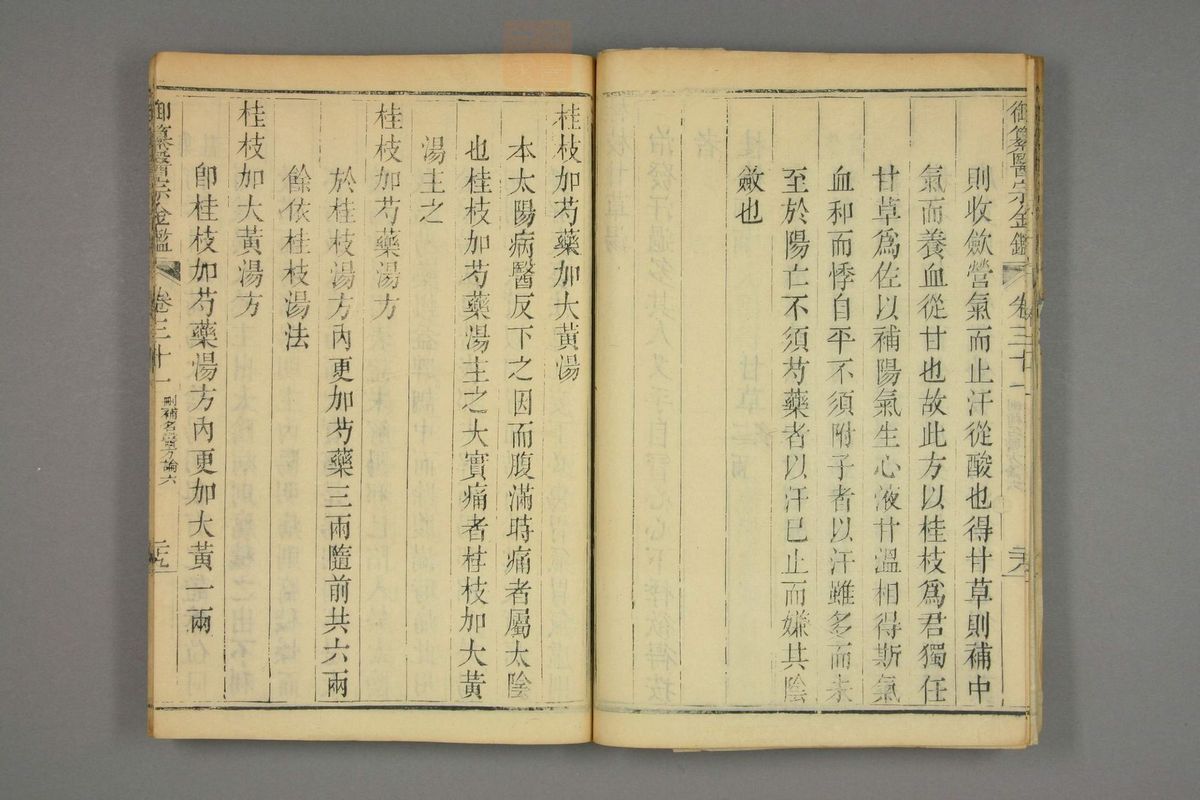 御纂醫宗金鑑 卷三十一
則收斂營氣而止汗從酸也得甘草則補中
氣而養血從甘也故此方以桂枝爲君獨任
甘草爲佐以補陽氣生心液甘溫相得斯氣
血和而悸自平不須附子者以汗雖多而未
至於陽亡不須芍藥者以汗已止而嫌其陰
斂也
桂枝加芍藥加大黃湯
本太陽病醫反下之因而腹滿時痛者屬太陰
也桂枝加芍藥湯主之大實痛者桂枝加大黃
湯主之
桂枝加芍藥湯方
於桂枝湯方內更加芍藥三兩隨前共六兩
餘依桂枝湯法
桂枝加大黃湯方
卽桂枝加芍藥湯方內更加大黃一兩
御纂醫宗金鑑 卷三十一 刪補名醫方論六